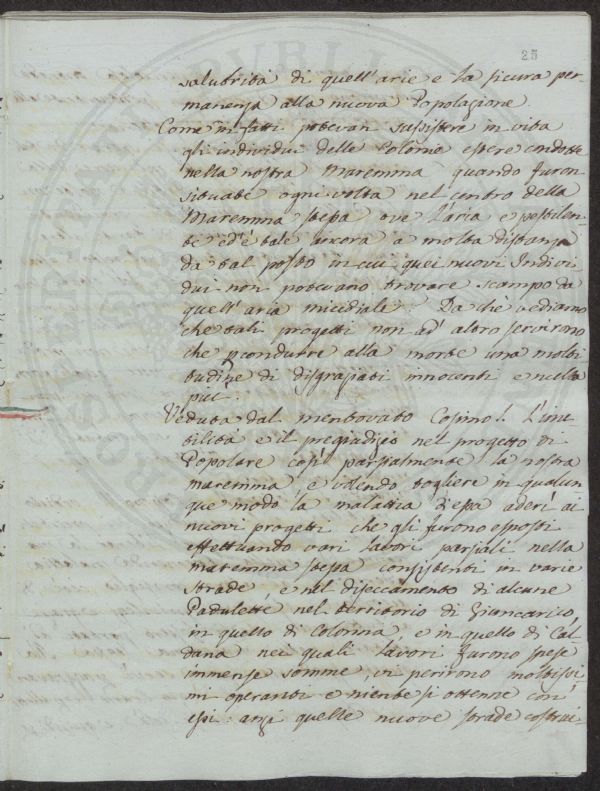 25
salubrità di quell'arie e la sicura per-
manenza alla nuova Popolazione.
Come in fatti potevan sussistere in vita
gli individui delle Colonie essere condotte
nella nostra Maremma quando furon
situate ogni volta nel centro della
Maremma stessa ove l'aria e pestilen-
te ed'è tale ancora a molta distanza
da tal posto in cui quei nuovi Indivi
dui non potevano trovare scampo da
quell'aria micidiale. Da chè vediamo
che tali progetti non ad' altro servirono
che condurre alla morte una molti
tudine di disgraziati innocenti e nulla
piu'.
Veduta dal mentovato Cosimo I. L'inu-
tilità e il pregiudizio nel progetto di
Popolare cosi' parzialmente la nostra
maremma e volendo togliere in qualun
que modo la malattia d'essa aderi' ai
nuovi progetti che gli furono esposti
effettuando vari Lavori parziali nella
maremma stessa consistenti in varie
strade e nel diseccamento di alcune
Padulette nel territorio di Giuncarico,
in quello di Colonna, e in quello di Cal
dana nei quali Lavori furono spese
immense somme, vi perirono moltissi-
mi operanti e niente si ottenne con
essi: anzi quelle nuove strade costrui-